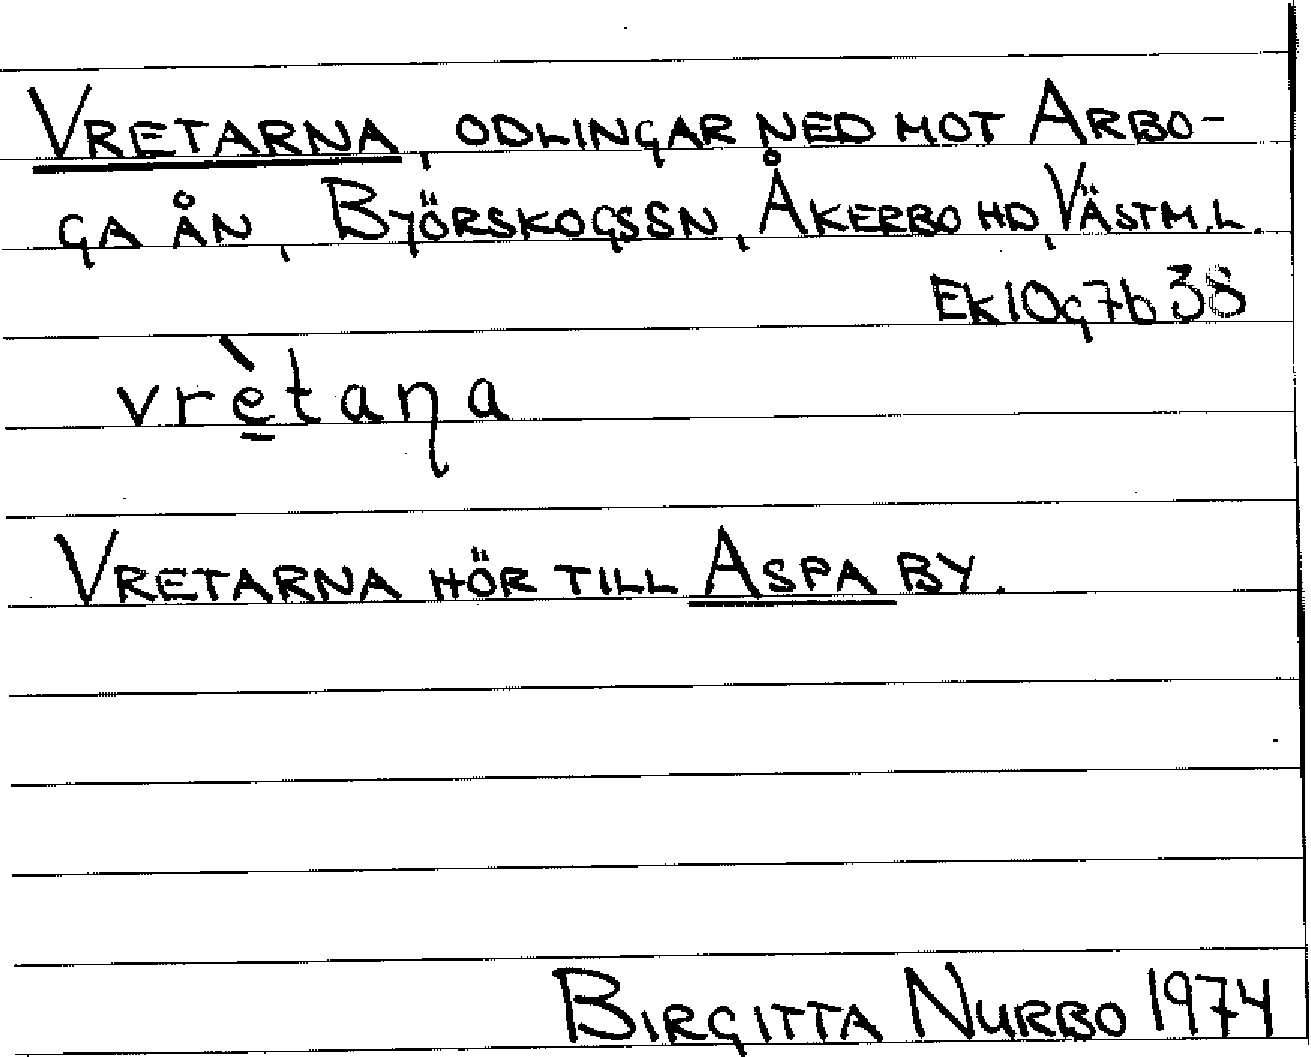 VRETARNA, ODLINGAR NED MOT ARBO-
GA ÅN, BJÖRSKOGSSN, ÅKERBO HD, VÄSTM.L.
Ek10g7b38
vrè̱taɳa
VRETARNA HÖR TILL ASPA BY.
BIRGITTA NURBO 1974